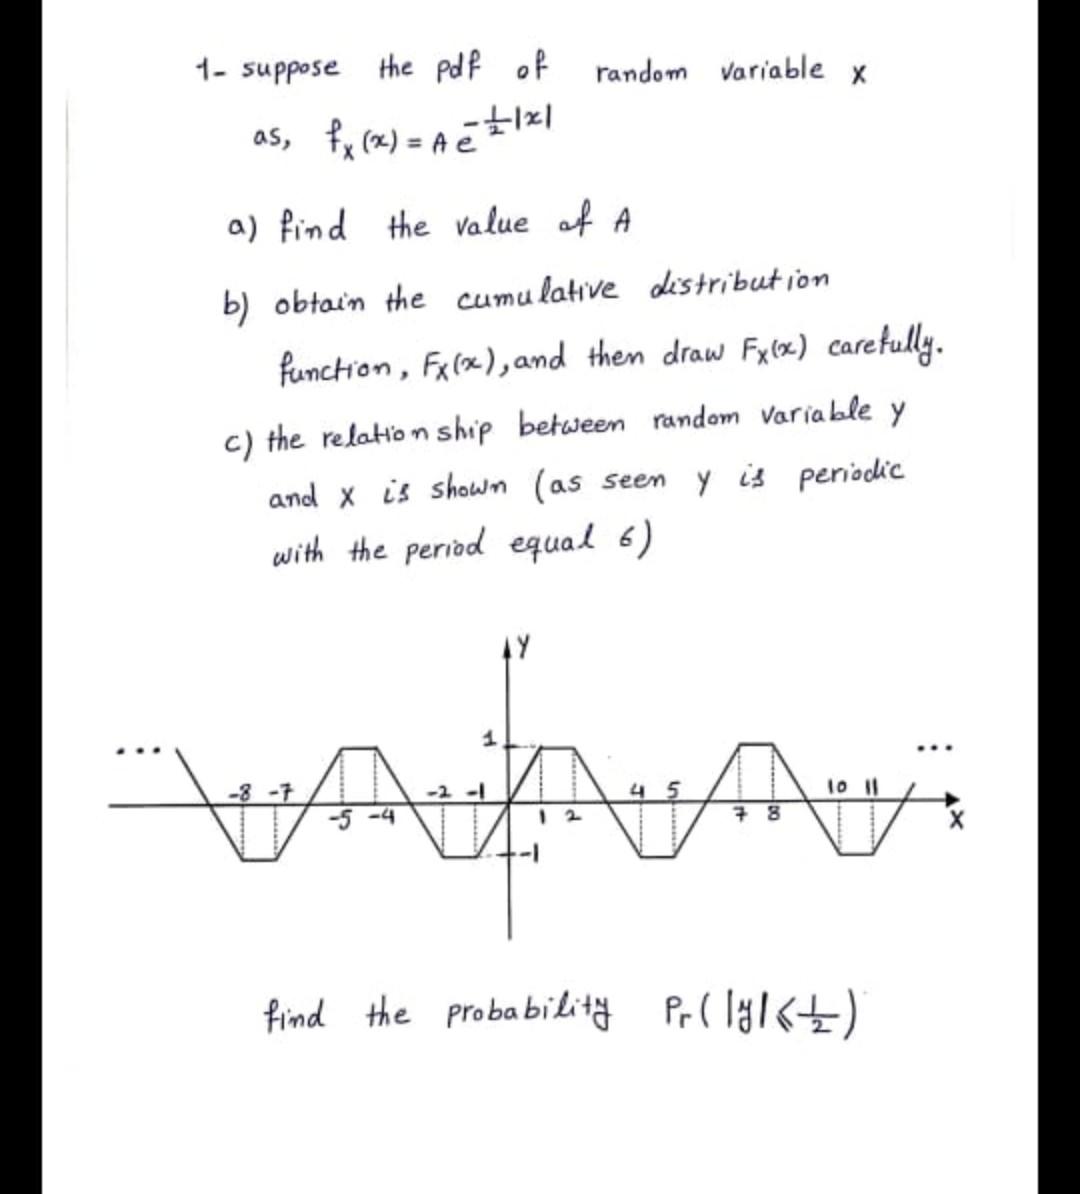 1- suppose the pdf of random variable x
as, fx(x) = A e^-1/2|x|
a) find the value of A
b) obtain the cumulative distribution
function, Fx(x), and then draw Fx(x) carefully.
c) the relationship between random variable y
and x is shown (as seen y is periodic
with the period equal 6)
Y
1
... -8 -7 -2 -1 4 5 10 11 ...
-5 -4 1 2 7 8 X
-1
find the probability Pr( |y| ⩽ 1/2 )